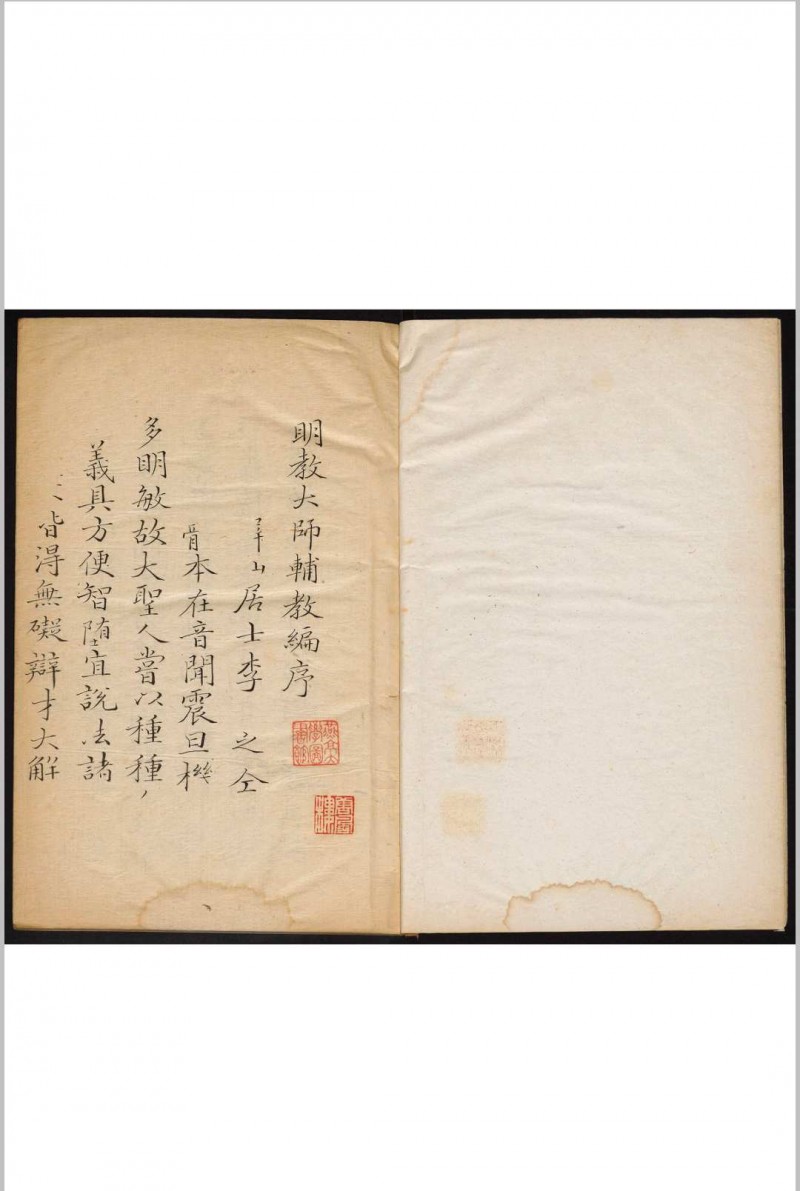 明教大師輔教編序
山居士李之仝
本在音聞震旦機
多明敏故大聖人嘗以種種
義具方便智堕宜說法諸
皆得無礙辯才大解